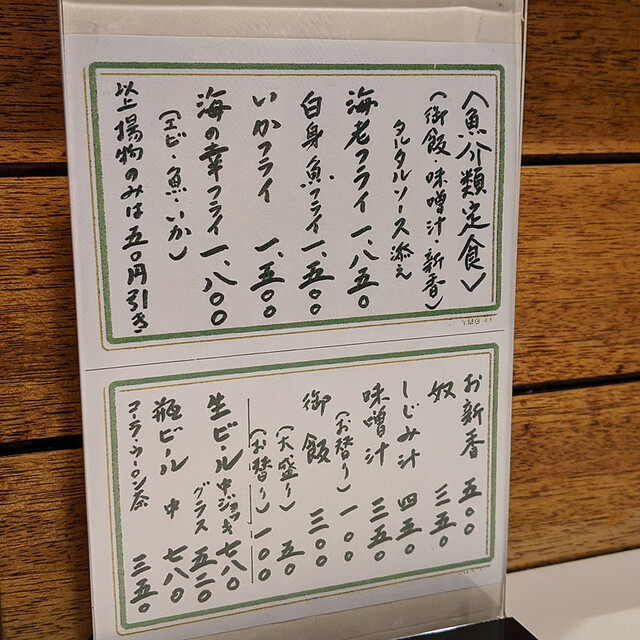 〈魚介類定食〉
(御飯・味噌汁・新香)
タルタルソース添え
海老フライ 一、八五〇
白身魚フライ 一、五〇〇
いかフライ 一、五〇〇
海の幸フライ 一、八〇〇
(エビ・魚・いか)
以上揚物のみは五〇円引き
YMG 41
お新香 五〇〇
奴 三五〇
しじみ汁 四五〇
味噌汁 三五〇
(お替り) 一〇〇
御飯 三〇〇
(大盛り) 五〇
(お替り) 一〇〇
生ビール 中ジョッキ 七八〇
グラス 五二〇
瓶ビール 中 七八〇
コーラ・ウーロン茶 三五〇